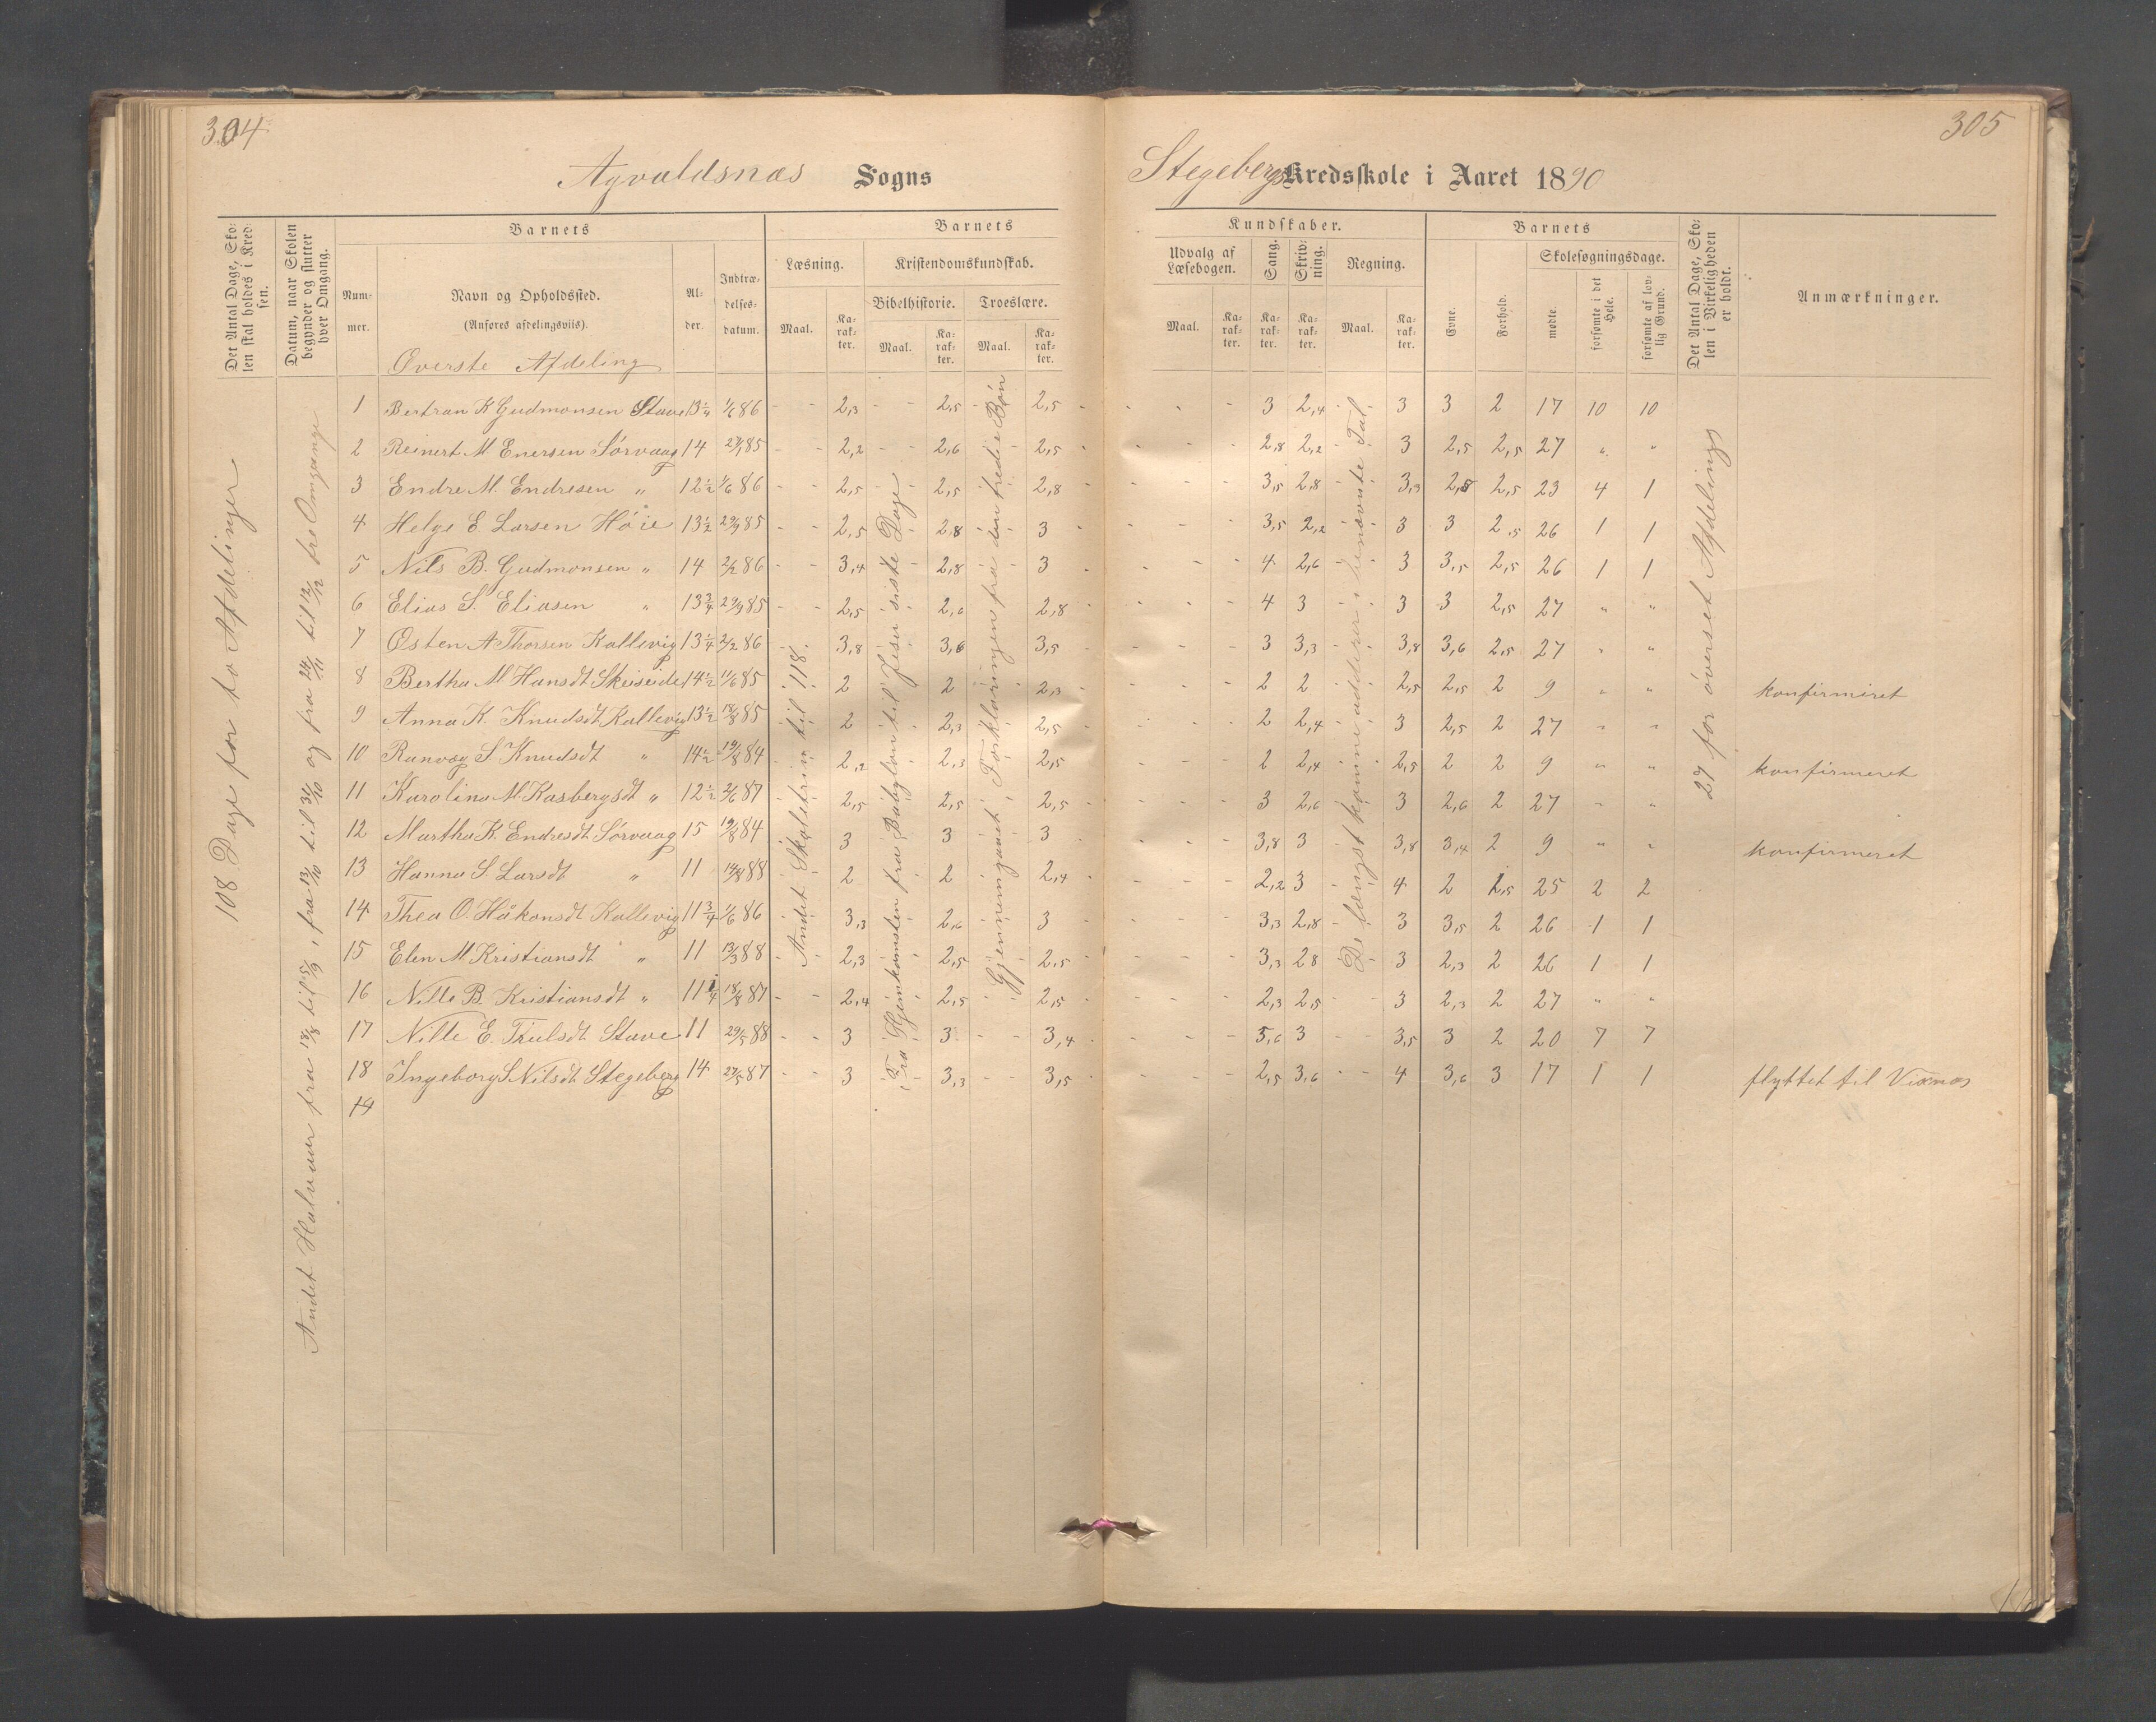 304
305
Agvaldsnæs Sogns
Stegebergs Kredsskole i Aaret 1890
Det Antal Dage, Skolen skal holdes i Kredsen.
Datum, naar Skolen begynder og slutter hver Omgang.
Barnets
Nummer.
Navn og Opholdssted.
(Anføres afdelingsviis).
Alder.
Indtrædelsesdatum.
Barnets
Læsning.
Kristendomskundskab.
Bibelhistorie.
Troeslære.
Maal.
Karakter.
Maal.
Karakter.
Maal.
Karakter.
Kundskaber.
Udvalg af Læsebogen.
Sang.
Skrivning.
Regning.
Maal.
Karakter.
Karakter.
Karakter.
Maal.
Karakter.
Barnets
Evne.
Forhold.
Skolesøgningsdage.
mødte.
forsømte i det Hele.
forsømte af lovlig Grund.
Det Antal Dage, Skolen i Virkeligheden er holdt.
Anmærkninger.
Øverste Afdeling
108 Dage for to Afdelinger
Andet Halvaar fra 18/8 til 5/9, fra 13/10 til 31/10 og fra 24/11 til 12/12 tre Omgange
Andet Skoletrin til 118.
Fra Hjemkomsten fra Babylon til Jesu sidste Dage
Gjennemgaaet Forklaringen fra den tredie Bøn
De længst komne adderer i benævnte Tal
27 for øverset Afdelings
1 Bertran K Gudmonsen Stave 13 1/4 1/6 86 - - 2,3 - - 2,5 - 2,5 - - - - 3 2,4 - 3 3 2 17 10 10
2 Reinert M Enersen Sørvaag 14 27/1 85 - - 2,2 - - 2,6 - 2,5 - - - - 2,8 2,2 - 3 2,5 2,5 27 " "
3 Endre M. Endresen " 12 1/2 1/6 86 - - 2,5 - - 2,5 - 2,8 - - - - 3,5 2,8 - 3,3 2,8 2,5 23 4 1
4 Helge E Larsen Høie 13 1/2 29/9 85 - - 2,5 - 2,8 - 3 - - - - 3,5 2,2 - 3 3 2,5 26 1 1
5 Nils B. Gudmonsen " 14 2/2 86 - - 3,4 - 2,8 - 3 - - - - 4 2,6 - 3 3,5 2,5 26 1 1
6 Elias S. Eliasen " 13 3/4 29/9 85 - - 2,5 - 2,6 - 2,8 - - - - 4 3 - 3 3 2,5 27 " "
7 Østen A Thorsen Kallevig 13 1/4 2/2 86 - 3,8 - 3,6 - 3,5 - - - - 3 3,3 - 3,8 3,6 2,5 27 " "
8 Bertha M Hansdt Skeiseide 14 1/2 11/6 85 - 2 - 2 - 2,3 - - - - 2 2 - 2,5 2,5 2 9 " " konfirmeret
9 Anna K. Knudsdt Kallevig 13 1/2 18/8 85 - 2 - 2,3 - 2,5 - - - - 2 2,4 - 3 2,5 2 27 " "
10 Ranvæg S Knudsdt " 14 1/2 19/8 84 - 2,2 - 2,3 - 2,5 - - - - 2 2,4 - 2,5 2 2 9 " " konfirmeret
11 Karolina M. Kasbergsdt " 12 1/2 2/6 87 - 2,5 - 2,5 - 2,5 - - - - 3 2,6 - 3 2,6 2 27 " "
12 Martha K. Endresdt Sørvaag 15 19/8 84 - 3 - 3 - 3 - - - - 3,8 3 - 3,8 3,4 2 9 " " konfirmeret
13 Hanna S Larsdt " 11 14/8 88 - 2 - 2 - 2,4 - - - - 2,2 3 - 4 2 1,5 25 2 2
14 Thea O. Håkonsdt Kallevig 11 3/4 1/6 86 - 3,3 - 2,6 - 3 - - - - 3,3 2,8 - 3 3,5 2 26 1 1
15 Elen M Kristiansdt " 11 13/3 88 - 2,3 - 2,5 - 2,5 - - - - 3,3 28 - 3 2,3 2 26 1 1
16 Nille B. Kristiansdt " 11 1/4 18/8 87 - - 2,4 - 2,5 - 2,5 - - - - 2,3 2,5 - - 3 2,3 2 27 " "
17 Nille E. Trulsdt Stave 11 29/5 88 - - 3 - 3 - - 3,4 - - - 3,6 3 - - 3,5 3 2 20 7 7
18 Ingeborg S Nilsdt Stegeberg 14 27/5 87 - - 3 - - 3,3 - - 3,5 - - - 2,5 3,6 - - 4 3,6 3 17 1 1 flyttet til Visnæs
19